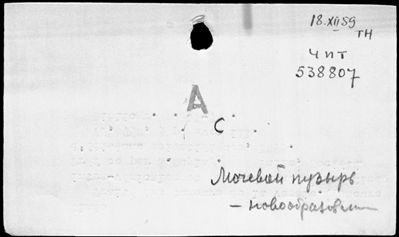 18.XII59
ТН
ЧИТ
538807
А
С
Мочевой пузырь
— новообразован